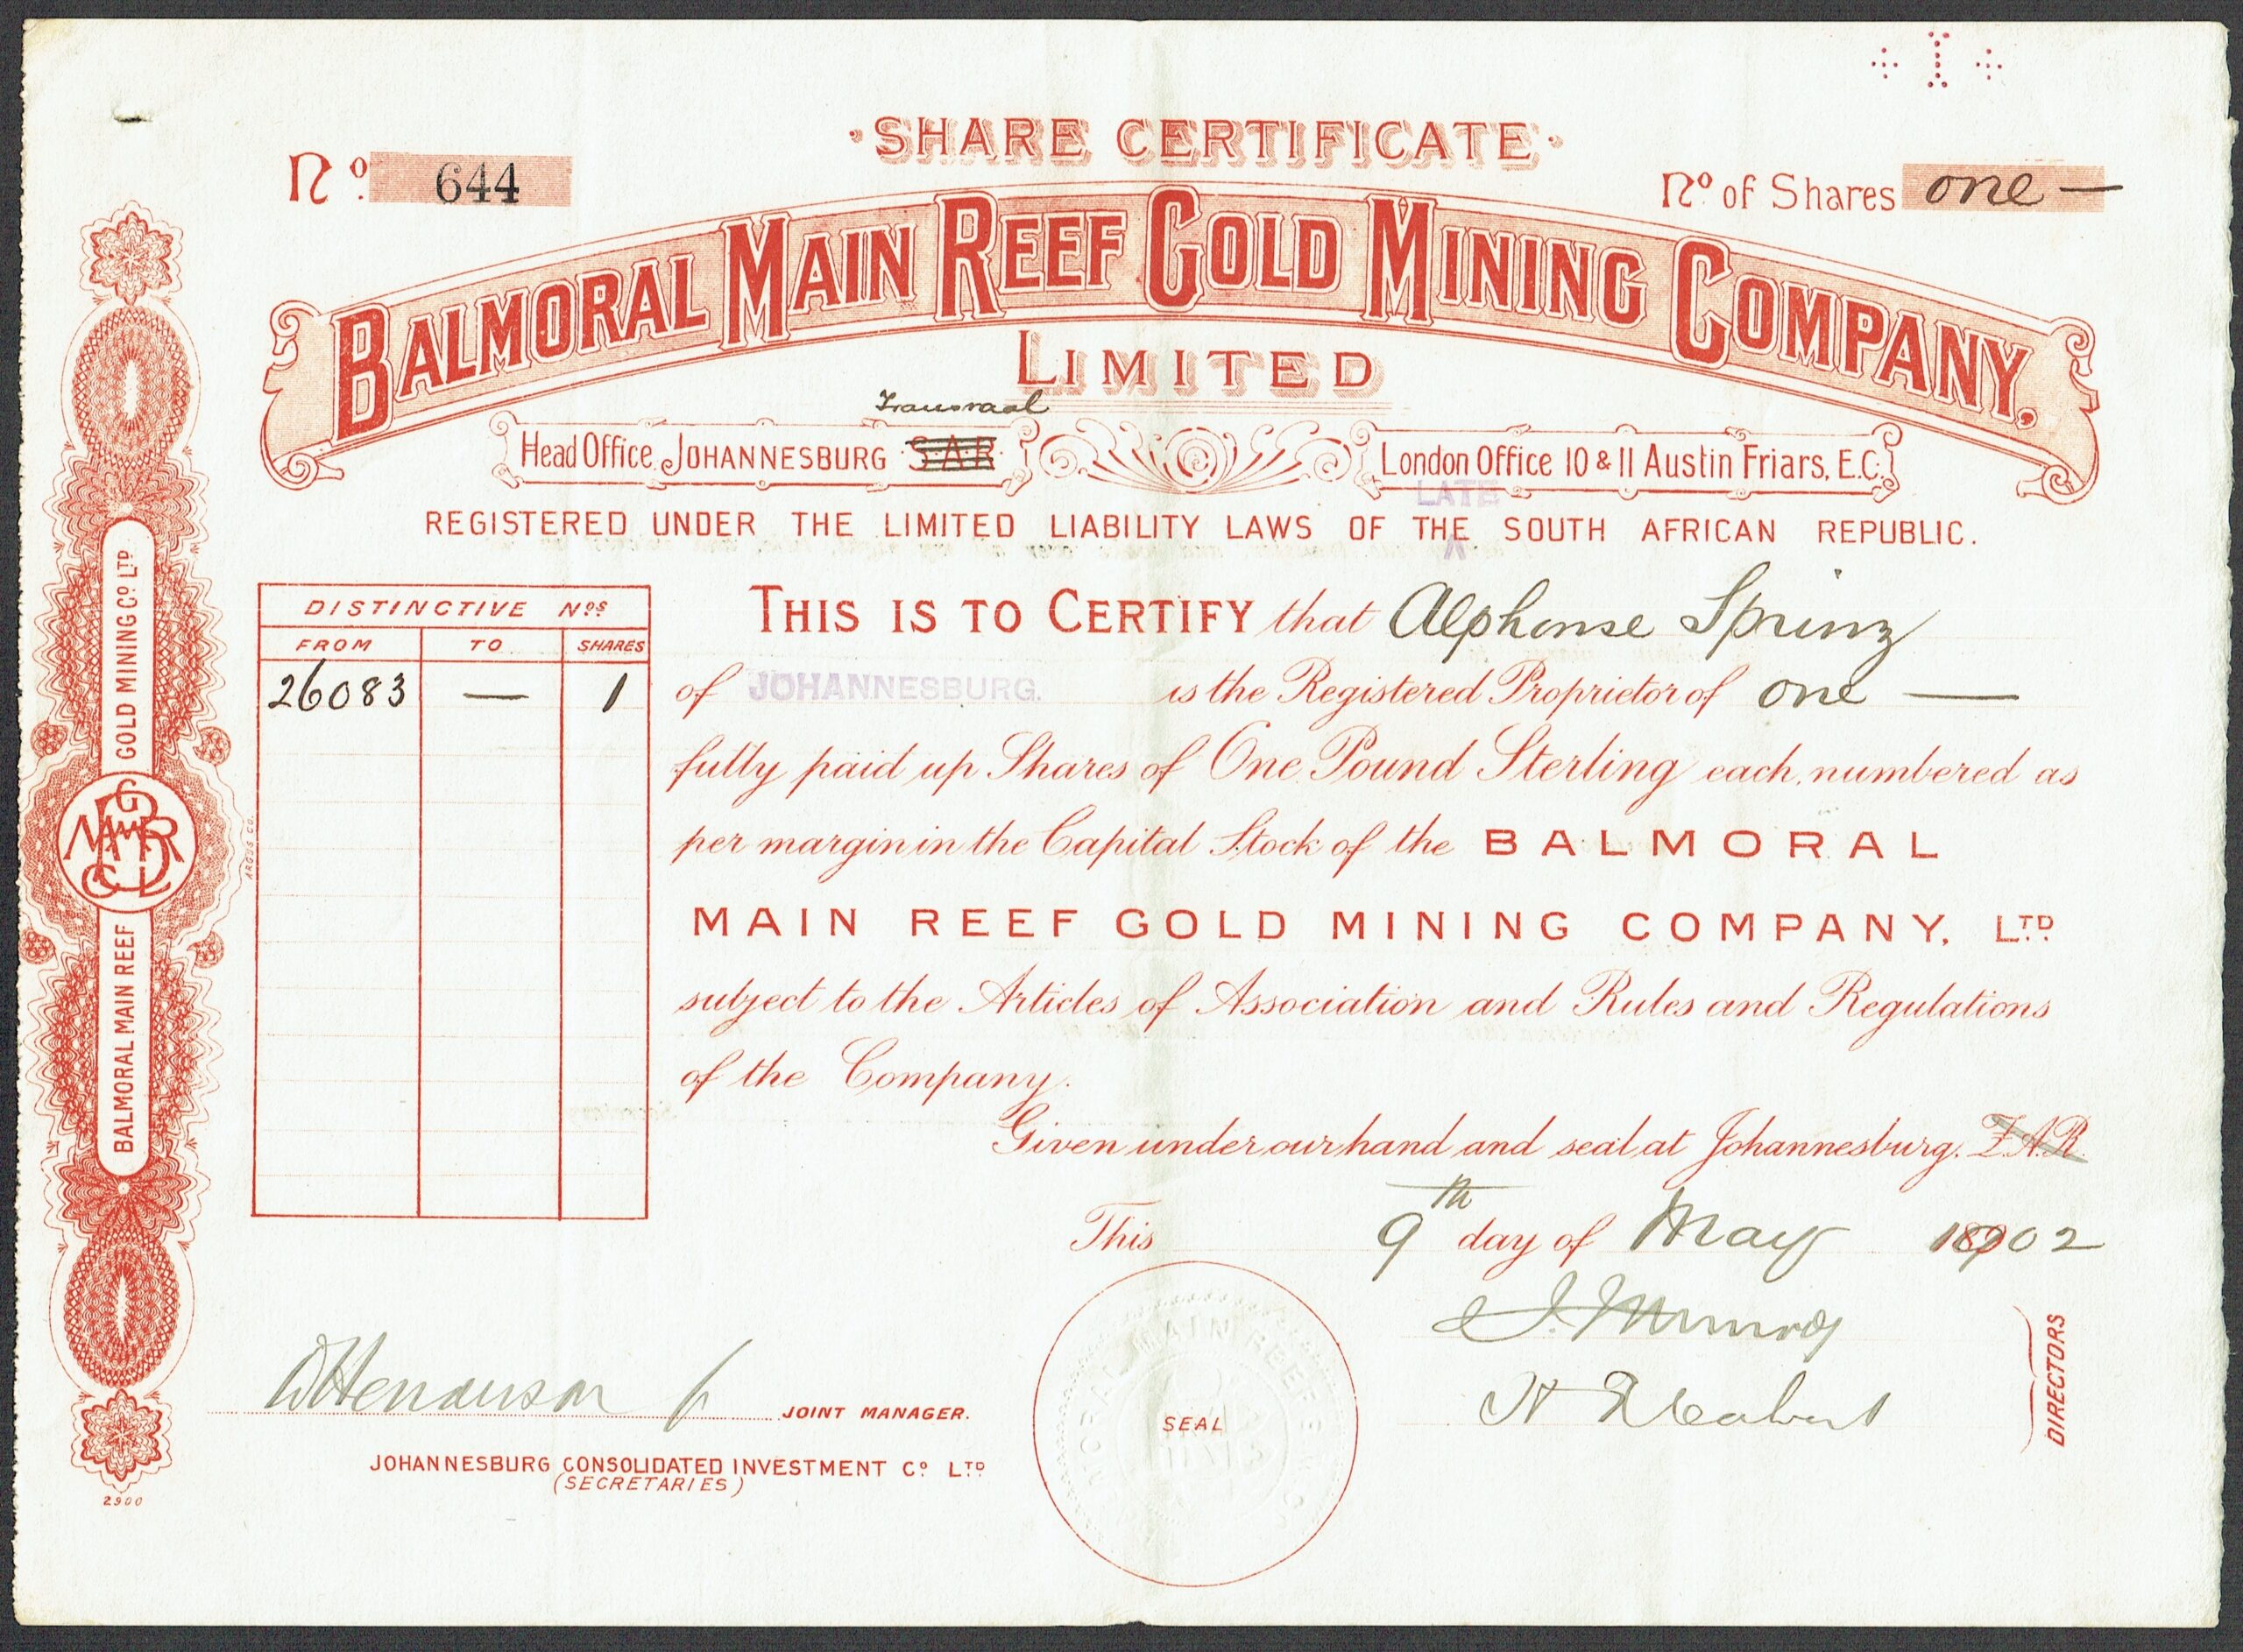 ÷ I ÷
· SHARE CERTIFICATE ·
No. 644
No of Shares one —
BALMORAL MAIN REEF GOLD MINING COMPANY,
LIMITED
Transvaal
Head Office, JOHANNESBURG S.A.R.
London Office 10 & 11 Austin Friars, E.C.
LATE
REGISTERED UNDER THE LIMITED LIABILITY LAWS OF THE ^ SOUTH AFRICAN REPUBLIC.
DISTINCTIVE Nos
FROM TO SHARES
26083 — 1
THIS IS TO CERTIFY that Alphonse Sprinz
of JOHANNESBURG. is the Registered Proprietor of one —
fully paid up Shares of One Pound Sterling each, numbered as
per margin in the Capital Stock of the BALMORAL
MAIN REEF GOLD MINING COMPANY, LTD.
subject to the Articles of Association and Rules and Regulations
of the Company.
Given under our hand and seal at Johannesburg. Z.A.R.
This 9th day of May 1902
J. Munro
DIRECTORS
JOINT MANAGER.
JOHANNESBURG CONSOLIDATED INVESTMENT Co LTD.
(SECRETARIES)
SEAL
BALMORAL MAIN REEF GOLD MINING CO. LTD
ARGUS CO.
2900